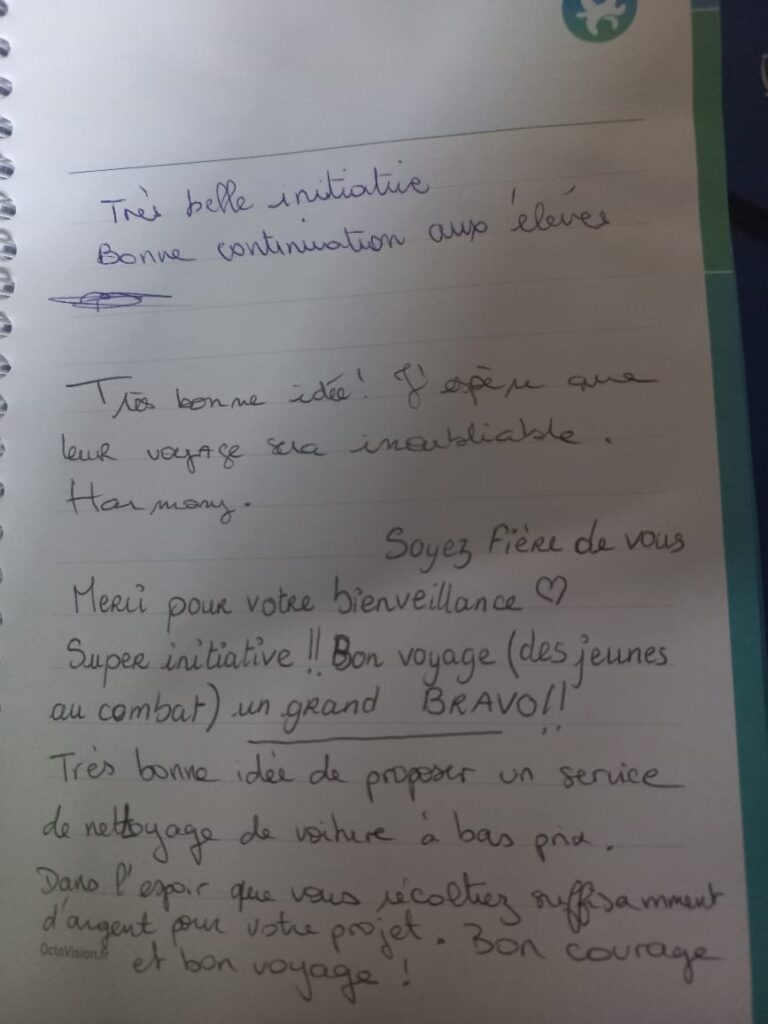 Très belle initiative
Bonne continuation aux élèves
Très bonne idée! J'espère que
leur voyage sera inoubliable.
Harmony.
Soyez fière de vous
Merci pour votre bienveillance ♡
Super initiative !! Bon voyage (des jeunes
au combat) un grand BRAVO!!
Très bonne idée de proposer un service
de nettoyage de voiture à bas prix.
Dans l'espoir que vous récoltiez suffisamment
d'argent pour votre projet. Bon courage
OctoVision.fr
et bon voyage !